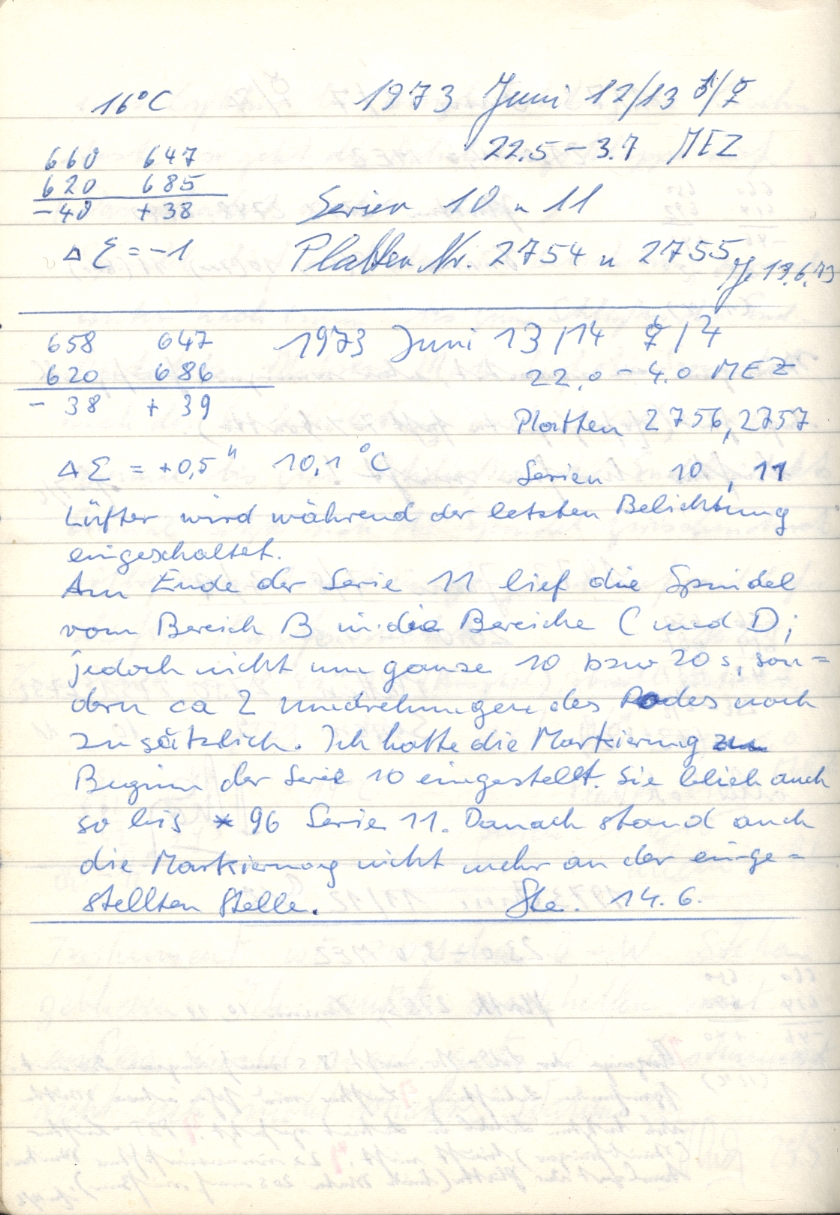 16°C 1973 Juni 12/13 ♂/☿
22.5 – 3.7 MEZ
660 647
620 685
-40 +38
Serien 10 u 11
Δ Σ = -1
Platten Nr. 2754 u 2755
13.6.73
658 647
620 686
- 38 + 39
1973 Juni 13/14 ☿/♃
22.0 – 4.0 MEZ
Platten 2756, 2757
Δ Σ = +0,5" 10,1 °C Serien 10, 11
Lüfter wird während der letzten Belichtung
eingeschaltet.
Am Ende der Serie 11 lief die Spindel
vom Bereich B in die Bereiche C und D;
jedoch nicht um ganze 10 bzw 20 s, son=
dern ca 2 Umdrehungen des Rades noch
zusätzlich. Ich hatte die Markierung zu
Beginn der Serie 10 eingestellt. Sie blieb auch
so bis * 96 Serie 11. Danach stand auch
die Markierung nicht mehr an der einge=
stellten Stelle. Ste. 14.6.